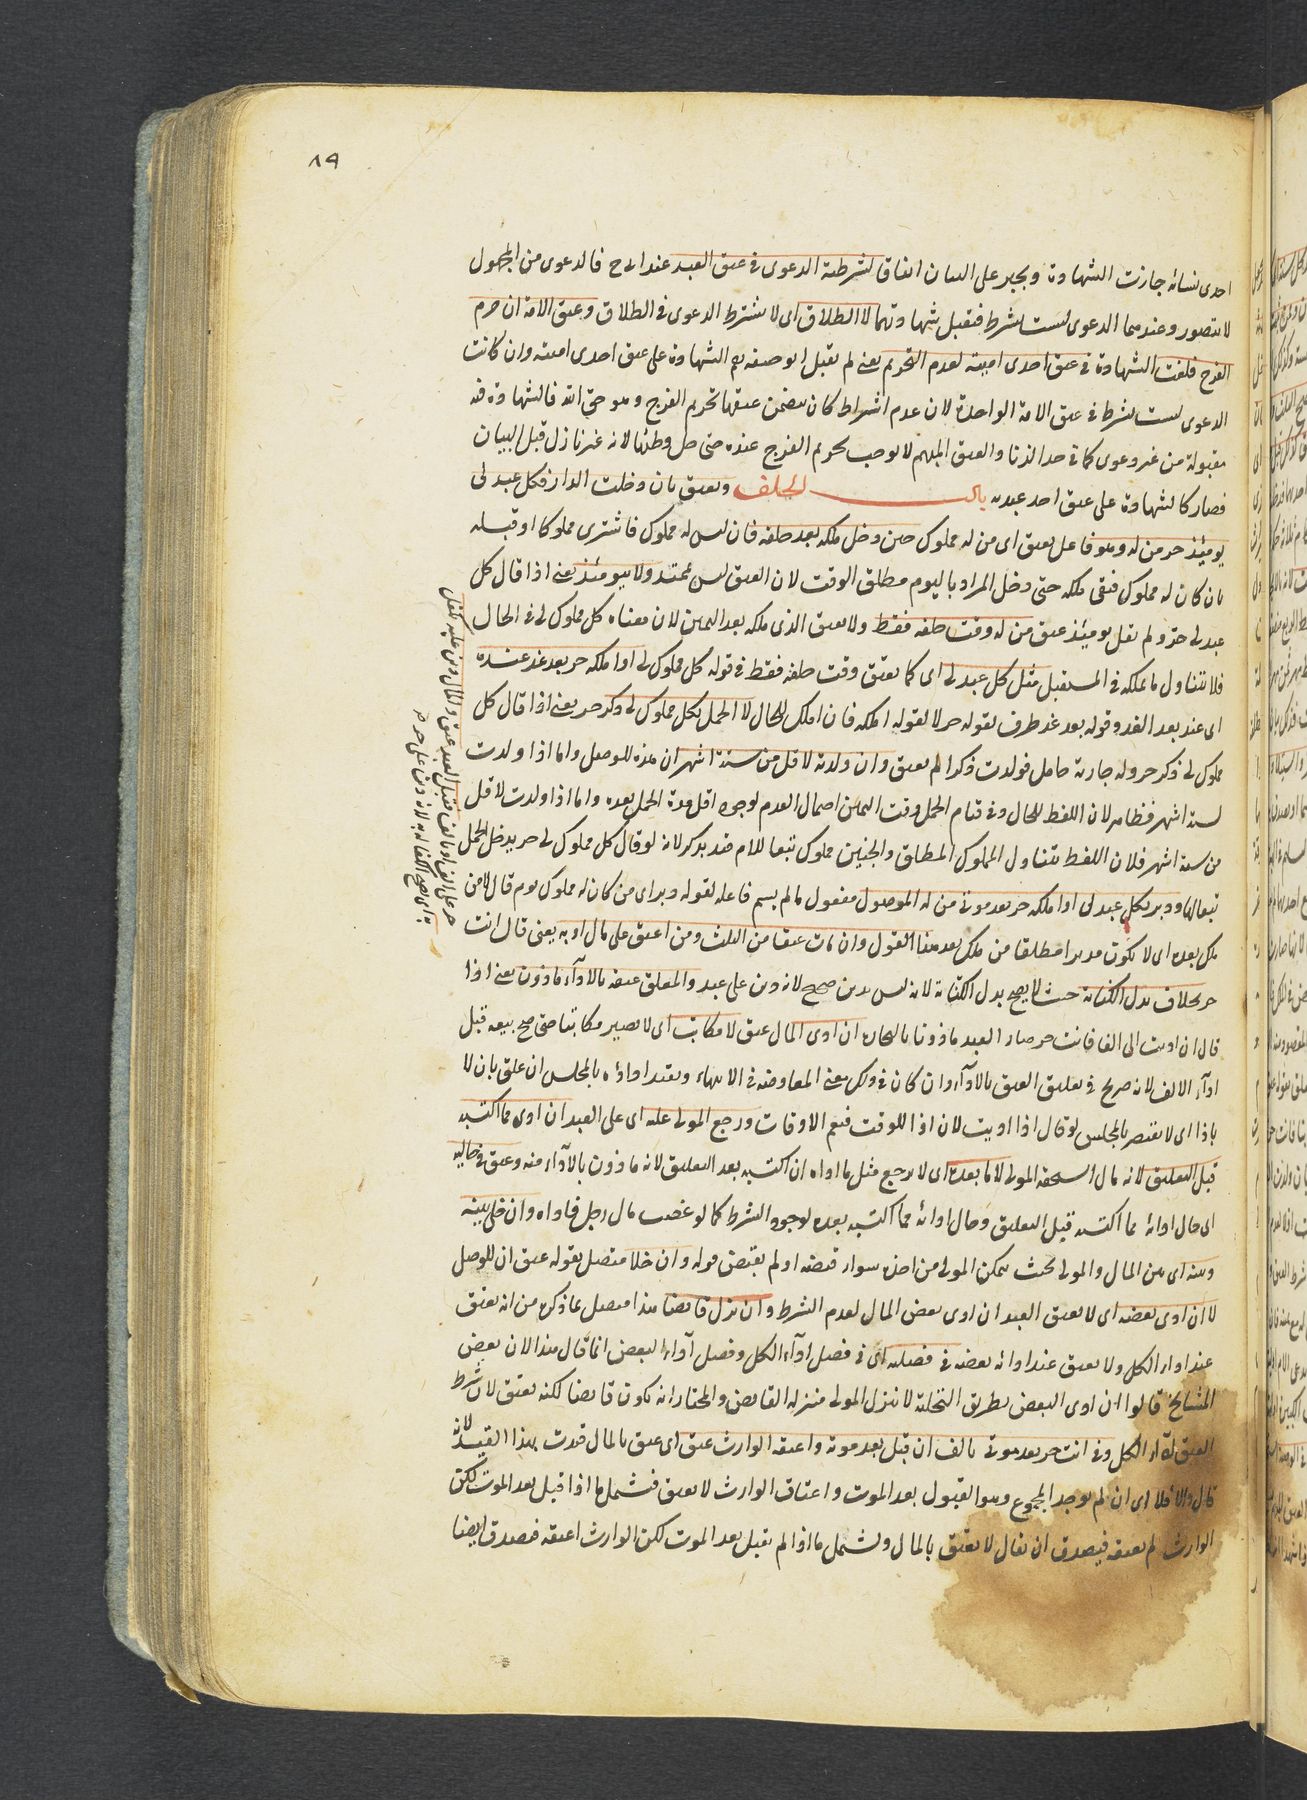 ٨٩
احدى نسائه جازت الشهادة ويجبر على البيان اتفاقا لشرطية الدعوى في عتق العبد عند ابى ح فالدعوى من المجهول
لا يتصور وعندهما الدعوى ليست بشرط فتقبل شهادتهما لا الطلاق اى لا يشترط الدعوى في الطلاق وعتق الامة ان حرم
الفرج فلغت الشهادة في عتق احدى امتيه لعدم التحريم يعنى لم يقبل ابو حنيفه رحم الشهادة على عتق احدى امتيه وان كانت
الدعوى ليست بشرط في عتق الامة الواحدة لان عدم اشتراط كان يتضمن عتقها تحريم الفرج وهو حق الله فالشهادة فيه
مقبولة من غير دعوى كما في حد الزنا والعتق المبهم لا يوجب تحريم الفرج عنده حتى حل وطئهما لانه غير نازل قبل البيان
فصار كالشهادة على عتق احد عبديه باب الحلف ويعتق بان دخلت الدار فكل عبد لى
يومئذ حر من له وهو فاعل يعتق اى من له مملوك حين دخل ملكه بعد حلفه فان ليس له مملوك فاشترى مملوكا او قبله
بان كان له مملوك فبقى ملكه حتى دخل المراد باليوم مطلق الوقت لان العتق ليس بممتد ولا بيومئذ يعنى اذا قال كل
عبد لى حر ولم يقل يومئذ عتق من له وقت حلفه فقط ولا يعتق الذى ملكه بعد اليمين لان معناه كل مملوك لى في الحال
فلا يتناول ما يملكه في المستقبل مثل كل عبد لى اى كما يعتق وقت حلفه فقط في قوله كل مملوك لى او املكه حر بعد غد عنده
اى عند بعد الغد وقوله بعد غد ظرف لقوله حر لا لقوله املكه فان املك للحال لا الحمل بكل مملوك لى ذكر حر يعنى اذا قال كل
مملوك لى ذكر حر وله جارية حامل فولدت ذكرا لم يعتق وان ولدته لاقل من ستة اشهر ان هذه للوصل واما اذا ولدت
لستة اشهر فظاهر لان اللفظ للحال وفي قيام الحمل وقت اليمين احتمال العدم لوجود اقل مدة الحمل بعده واما اذا ولدت لاقل
من ستة اشهر فلان اللفظ يتناول المملوك المطلق والجنين مملوك تبعا للام قيد بذكر لانه لو قال كل مملوك لى حر يدخل الحمل
تبعا لها ودبر بكل عبد لى او املكه حر بعد موتى من له الموصول مفعول ما لم يسم فاعله لقوله دبر اى من كان له مملوك يوم قال لا من
ملك بعده اى لا يكون مدبرا مطلقا من ملك بعد هذا القول وان مات عتقا من الثلث ومن اعتق على مال او به يعنى قال انت
حر بخلاف بدل الكتابة حيث لا يصح بدل الكتابة لانه ليس بدين صحيح لانه دين على عبد والمعلق عتقه بالاداء ماذون يعنى اذا
قال ان اديت الى الفا فانت حر صار العبد ماذونا بالتجارة ان ادى المال عتق لا مكاتب اى لا يصير مكاتبا حتى صح بيعه قبل
اداء الالف لانه صريح في تعليق العتق بالاداء وان كان في ذلك معنى المعاوضة في الانتهاء وتقيد اداؤه بالمجلس ان علق بان لا
باذا اى لا يقتصر بالمجلس لو قال اذا اديت لان اذا للوقت فيعم الاوقات ورجع المولى عليه اى على العبد ان ادى مما اكتسبه
قبل التعليق لانه مال استحقه المولى لا ما بعده اى لا يرجع مثل ما اداه ان اكتسبه بعد التعليق لانه ماذون بالاداء منه وعتق في حاليه
اى حال ادائه مما اكتسبه قبل التعليق وحال ادائه مما اكتسبه بعده لوجود الشرط كما لو غصب مال رجل فاداه وان خلى بينه
وبينه اى بين المال والمولى بحيث يمكن المولى من اخذه سواء قبضه او لم يقبض قوله وان خلا متصل بقوله عتق ان للوصل
لا ان ادى بعضه اى لا يعتق العبد ان ادى بعض المال لعدم الشرط وان نزل قابضا هذا متصل بما ذكر من انه يعتق
عند اداء الكل ولا يعتق عند ادائه بعضه في فصليه اى في فصل اداء الكل وفصل اداء البعض انما قال هذا لان بعض
المشايخ قالوا ان ادى البعض بطريق التخلية لا ينزل المولى منزلة القابض والمختار انه يكون قابضا لكنه يعتق لان شرط
العتق اداء الكل وفي انت حر بعد موتى بالف ان قبل بعد موته واعتقه الوارث عتق اى عتق بالمال قيدت بهذا القيد لانه
قال والا فلا اى ان لم يوجد المجموع وهو القبول بعد الموت واعتاق الوارث لا يعتق فيشمل ما اذا قبل بعد الموت لكن
الوارث لم يعتقه فيصدق ان يقال لا يعتق بالمال ويشمل ما اذا لم يقبل بعد الموت لكن الوارث اعتقه فيصدق ايضا
حر على الف او بالف فقبل العبد عتق والمال دين عليه